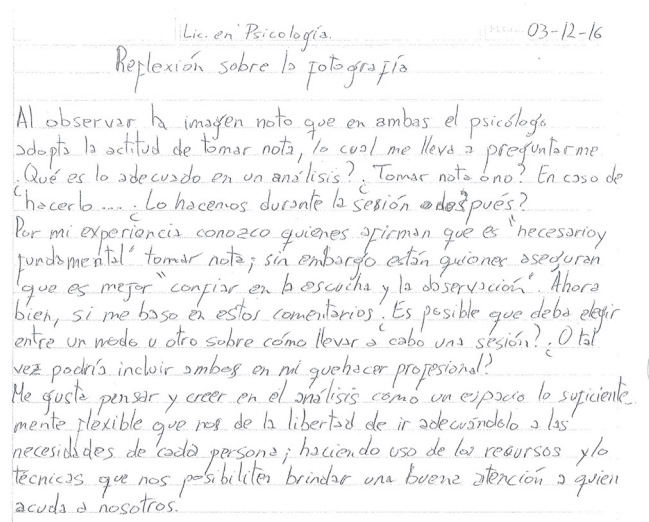 Lic. en Psicología. 03-12-16
Reflexión sobre la fotografía
Al observar la imagen noto que en ambas el psicólogo
adopta la actitud de tomar nota, lo cual me lleva a preguntarme
¿Qué es lo adecuado en un análisis? ¿Tomar nota ó no? En caso de
hacerlo .... ¿Lo hacemos durante la sesión o después?
Por mi experiencia conozco quienes afirman que es "necesario y
fundamental" tomar nota; sin embargo están quiones aseguran
que es mejor "confiar en la escucha y la observación". Ahora
bien, si me baso en estos comentarios ¿Es posible que deba elegir
entre un modo u otro sobre cómo llevar a cabo una sesión? ¿O tal
vez podría incluir ambos en mi quehacer profesional?
Me gusta pensar y creer en el análisis como un espacio lo suficiente_
mente flexible que nos de la libertad de ir adecuándolo a las
necesidades de cada persona; haciendo uso de los recursos y/o
técnicas que nos posibiliten brindar una buena atención a quien
acuda a nosotros.